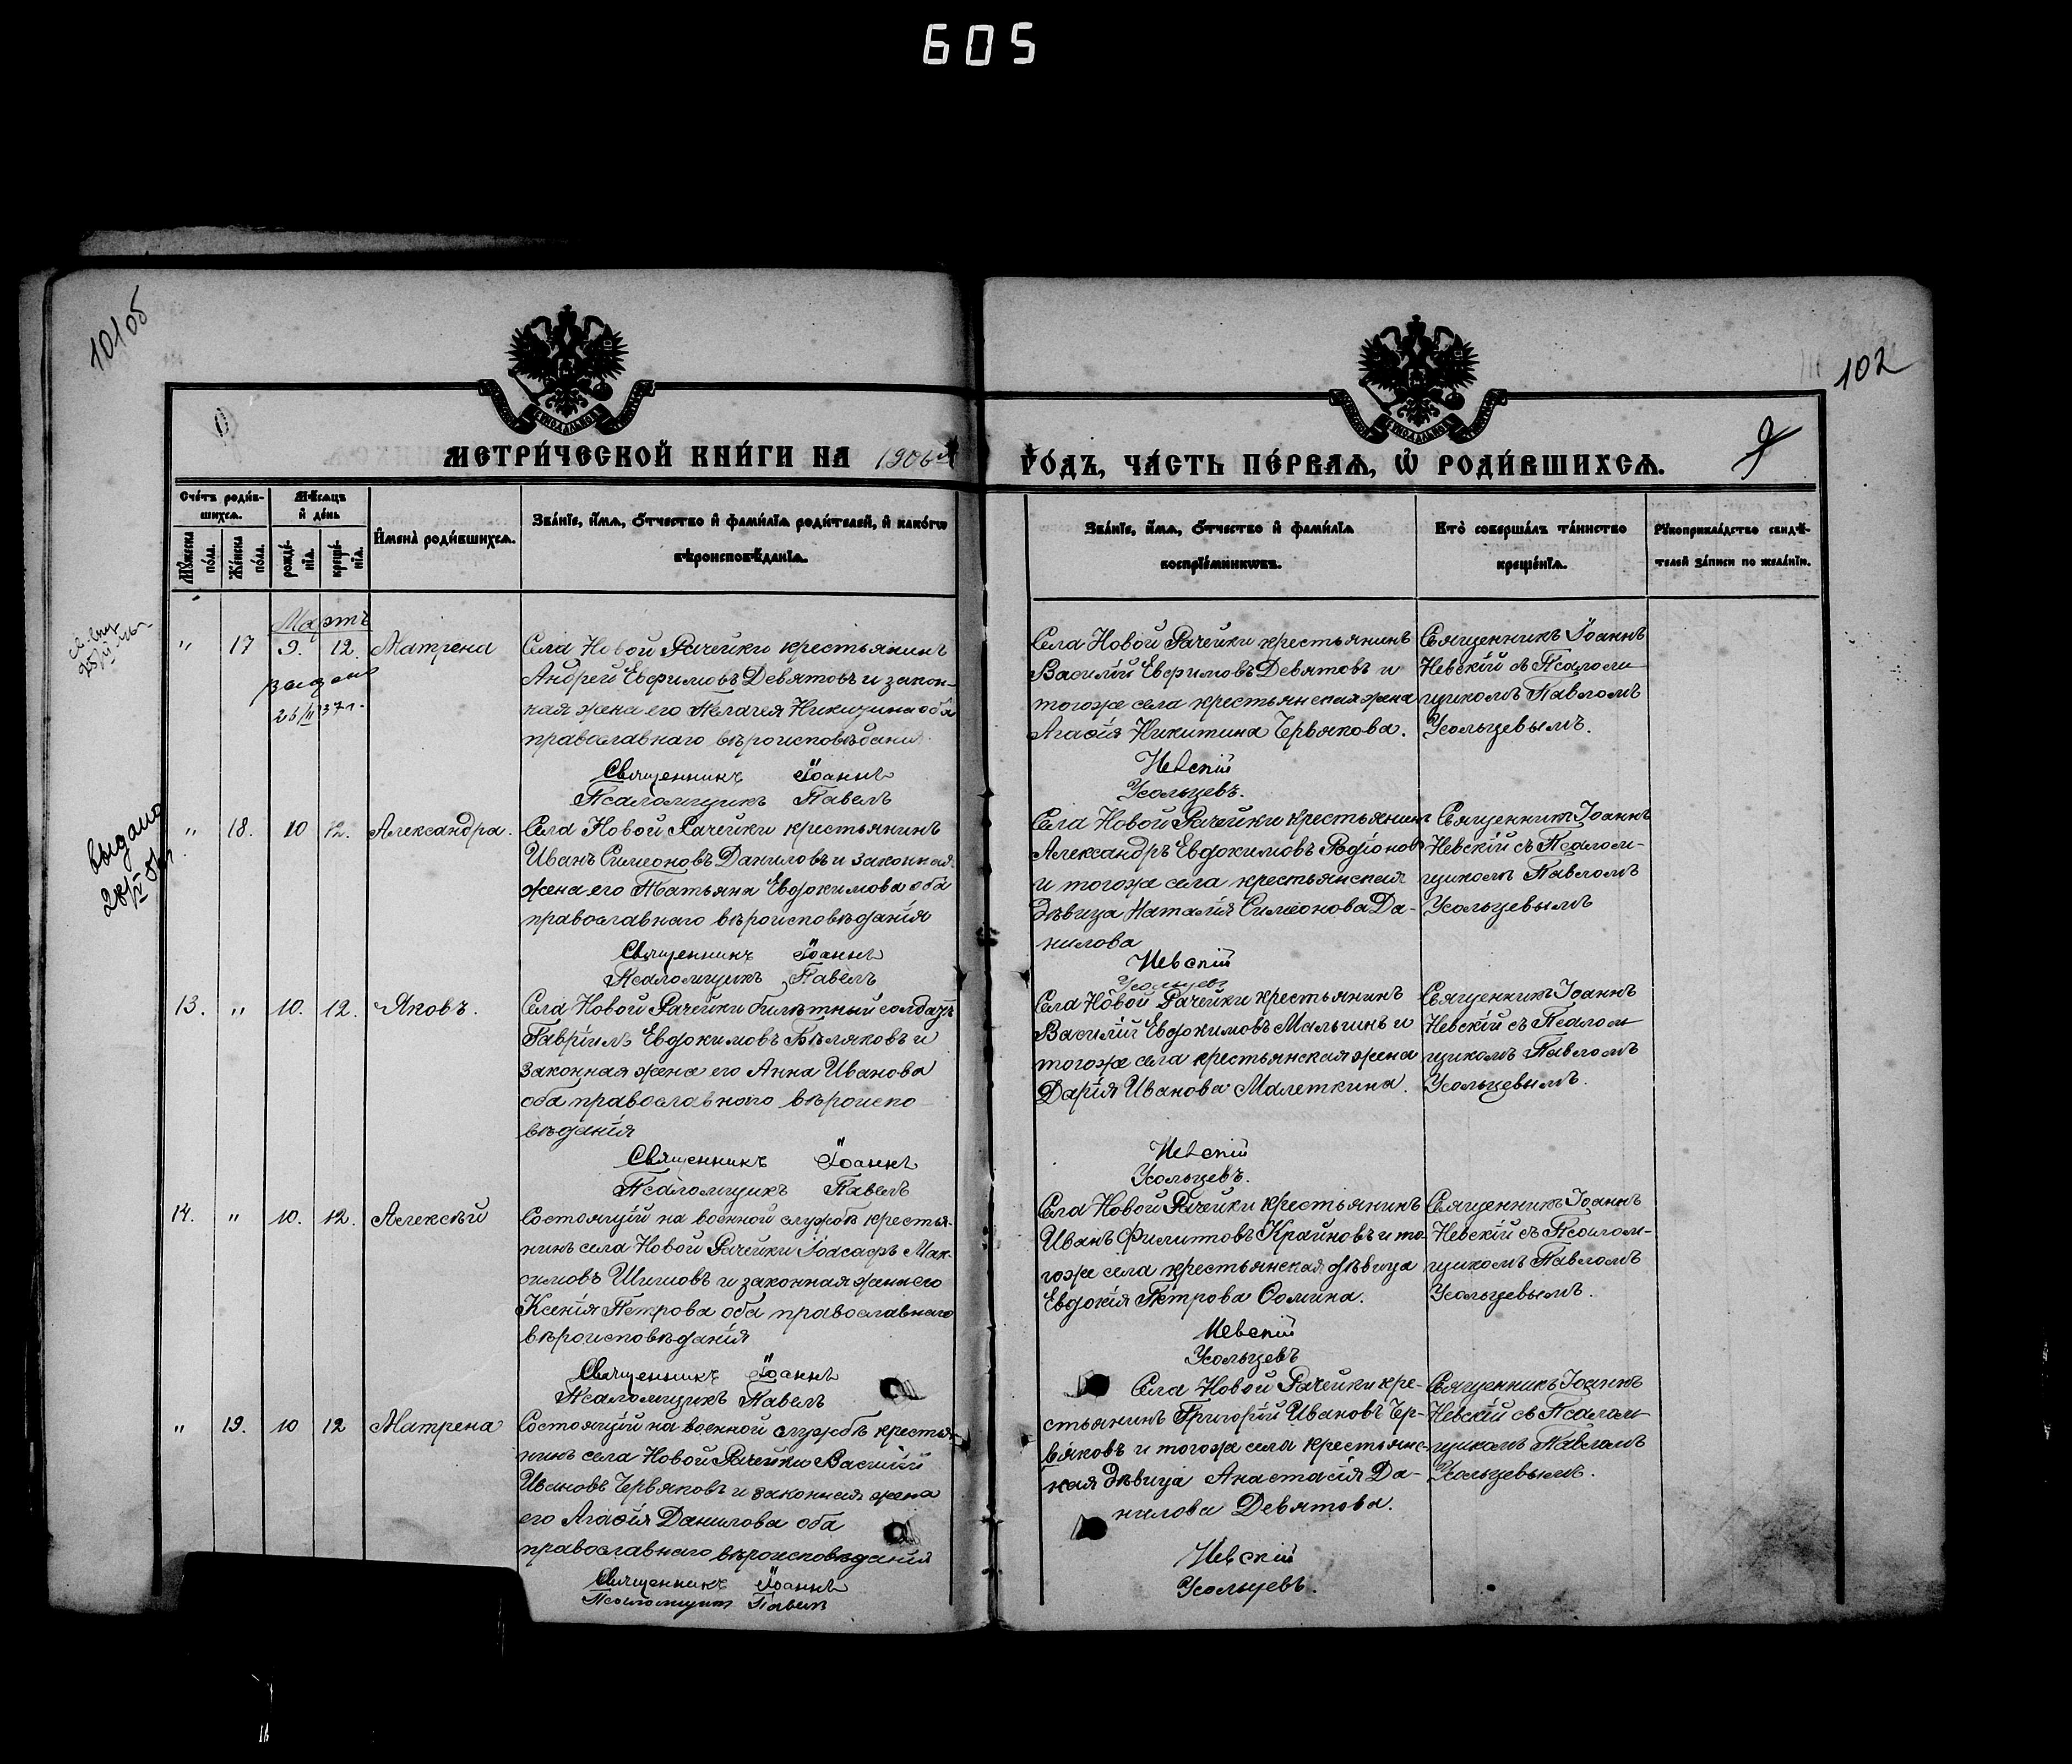 605
101об
102
9
МЕТРИ́ЧЕСКОЙ КНИ́ГИ НА 1906й
ГО́ДЪ, ЧА́СТЬ ПЕ́РВАѦ, Ѽ РОДИ́ВШИХСѦ.
Сче́тъ роди́в-
шихсѧ.
Мꙋ́жеска по́ла.
Же́нска по́ла.
Мѣ́сѧцъ
и҆ де́нь
рожде́-
нїѧ.
креще́-
нїѧ.
И҆мена̀ роди́вшихсѧ.
Зва́нїе, и҆́мѧ, ѻ҆́тчество и҆ фами́лїѧ роди́телей, и҆ како́гѡ
вѣроисповѣ́данїѧ.
Зва́нїе, и҆́мѧ, ѻ҆́тчество и҆ фами́лїѧ
воспрїе́мникѡвъ.
Кто̀ соверша́лъ та́инство
креще́нїѧ.
Рꙋкоприкла́дство свидѣ́-
телей за́писи по жела́нїю.
Мартъ
" 17 9. 12. Матрена
выдано
26/II 37г.
Села Новой Рачейки крестьянинъ
Андрей Евфимовъ Девятовъ и закон-
ная жена его Пелагея Никитина оба
православнаго вѣроисповѣданія.
Священникъ Іоаннъ
Псаломщикъ Павелъ
Села Новой Рачейки крестьянинъ
Василій Евфимовъ Девятовъ и
тогоже села крестьянская жена
Агаѳія Никитина Червякова.
Невскій
Усольцевъ.
Священникъ Іоаннъ
Невскій съ Псалом-
щикомъ Павломъ
Усольцевымъ.
выдано
" 18. 10 12. Александра.
Села Новой Рачейки крестьянинъ
Иванъ Симеоновъ Даниловъ и законная
жена его Татьяна Евдокимова оба
православнаго вѣроисповѣданія
Священникъ Іоаннъ
Псаломщикъ Павелъ
Села Новой Рачейки крестьянинъ
Александръ Евдокимовъ Родіоновъ
и тогоже села крестьянская
дѣвица Наталія Симеонова Да-
нилова
Невскій
Усольцевъ
Священникъ Іоаннъ
Невскій съ Псалом-
щикомъ Павломъ
Усольцевымъ
13. " 10. 12. Яковъ.
Села Новой Рачейки билетный солдатъ
Гавріилъ Евдокимовъ Бѣляковъ и
законная жена его Анна Иванова
оба православнаго вѣроиспо-
вѣданія
Священникъ Іоаннъ
Псаломщикъ Павелъ
Села Новой Рачейки крестьянинъ
Василій Евдокимовъ Мальгинъ и
тогоже села крестьянская жена
Дарія Иванова Малеткина.
Невскій
Усольцевъ.
Священникъ Іоаннъ
Невскій съ Псалом-
щикомъ Павломъ
Усольцевымъ.
14. " 10. 12. Алексѣй
Состоящій на военной службѣ крестья-
нинъ села Новой Рачейки Іоасафъ Мак-
симовъ Шишовъ и законная жена его
Ксенія Петрова оба православнаго
вѣроисповѣданія
Священникъ Іоаннъ
Псаломщикъ Павелъ
Села Новой Рачейки крестьянинъ
Иванъ Филиповъ Крайновъ и то-
гоже села крестьянская дѣвица
Евдокія Петрова Ѳомина.
Невскій
Усольцевъ
Священникъ Іоаннъ
Невскій съ Псалом-
щикомъ Павломъ
Усольцевымъ.
" 19. 10 12 Матрена
Состоящій на военной службѣ крестья-
нинъ села Новой Рачейки Василій
Ивановъ Червяковъ и законная жена
его Агаѳія Данилова оба
православнаго вѣроисповѣданія
Священникъ Іоаннъ
Псаломщикъ Павелъ
Села Новой Рачейки кре-
стьянинъ Григорій Ивановъ Чер-
вяковъ и тогоже села крестьянс-
кая дѣвица Анастасія Да-
нилова Девятова.
Невскій
Усольцевъ.
Священникъ Іоаннъ
Невскій съ Псалом-
щикомъ Павломъ
Усольцевымъ.